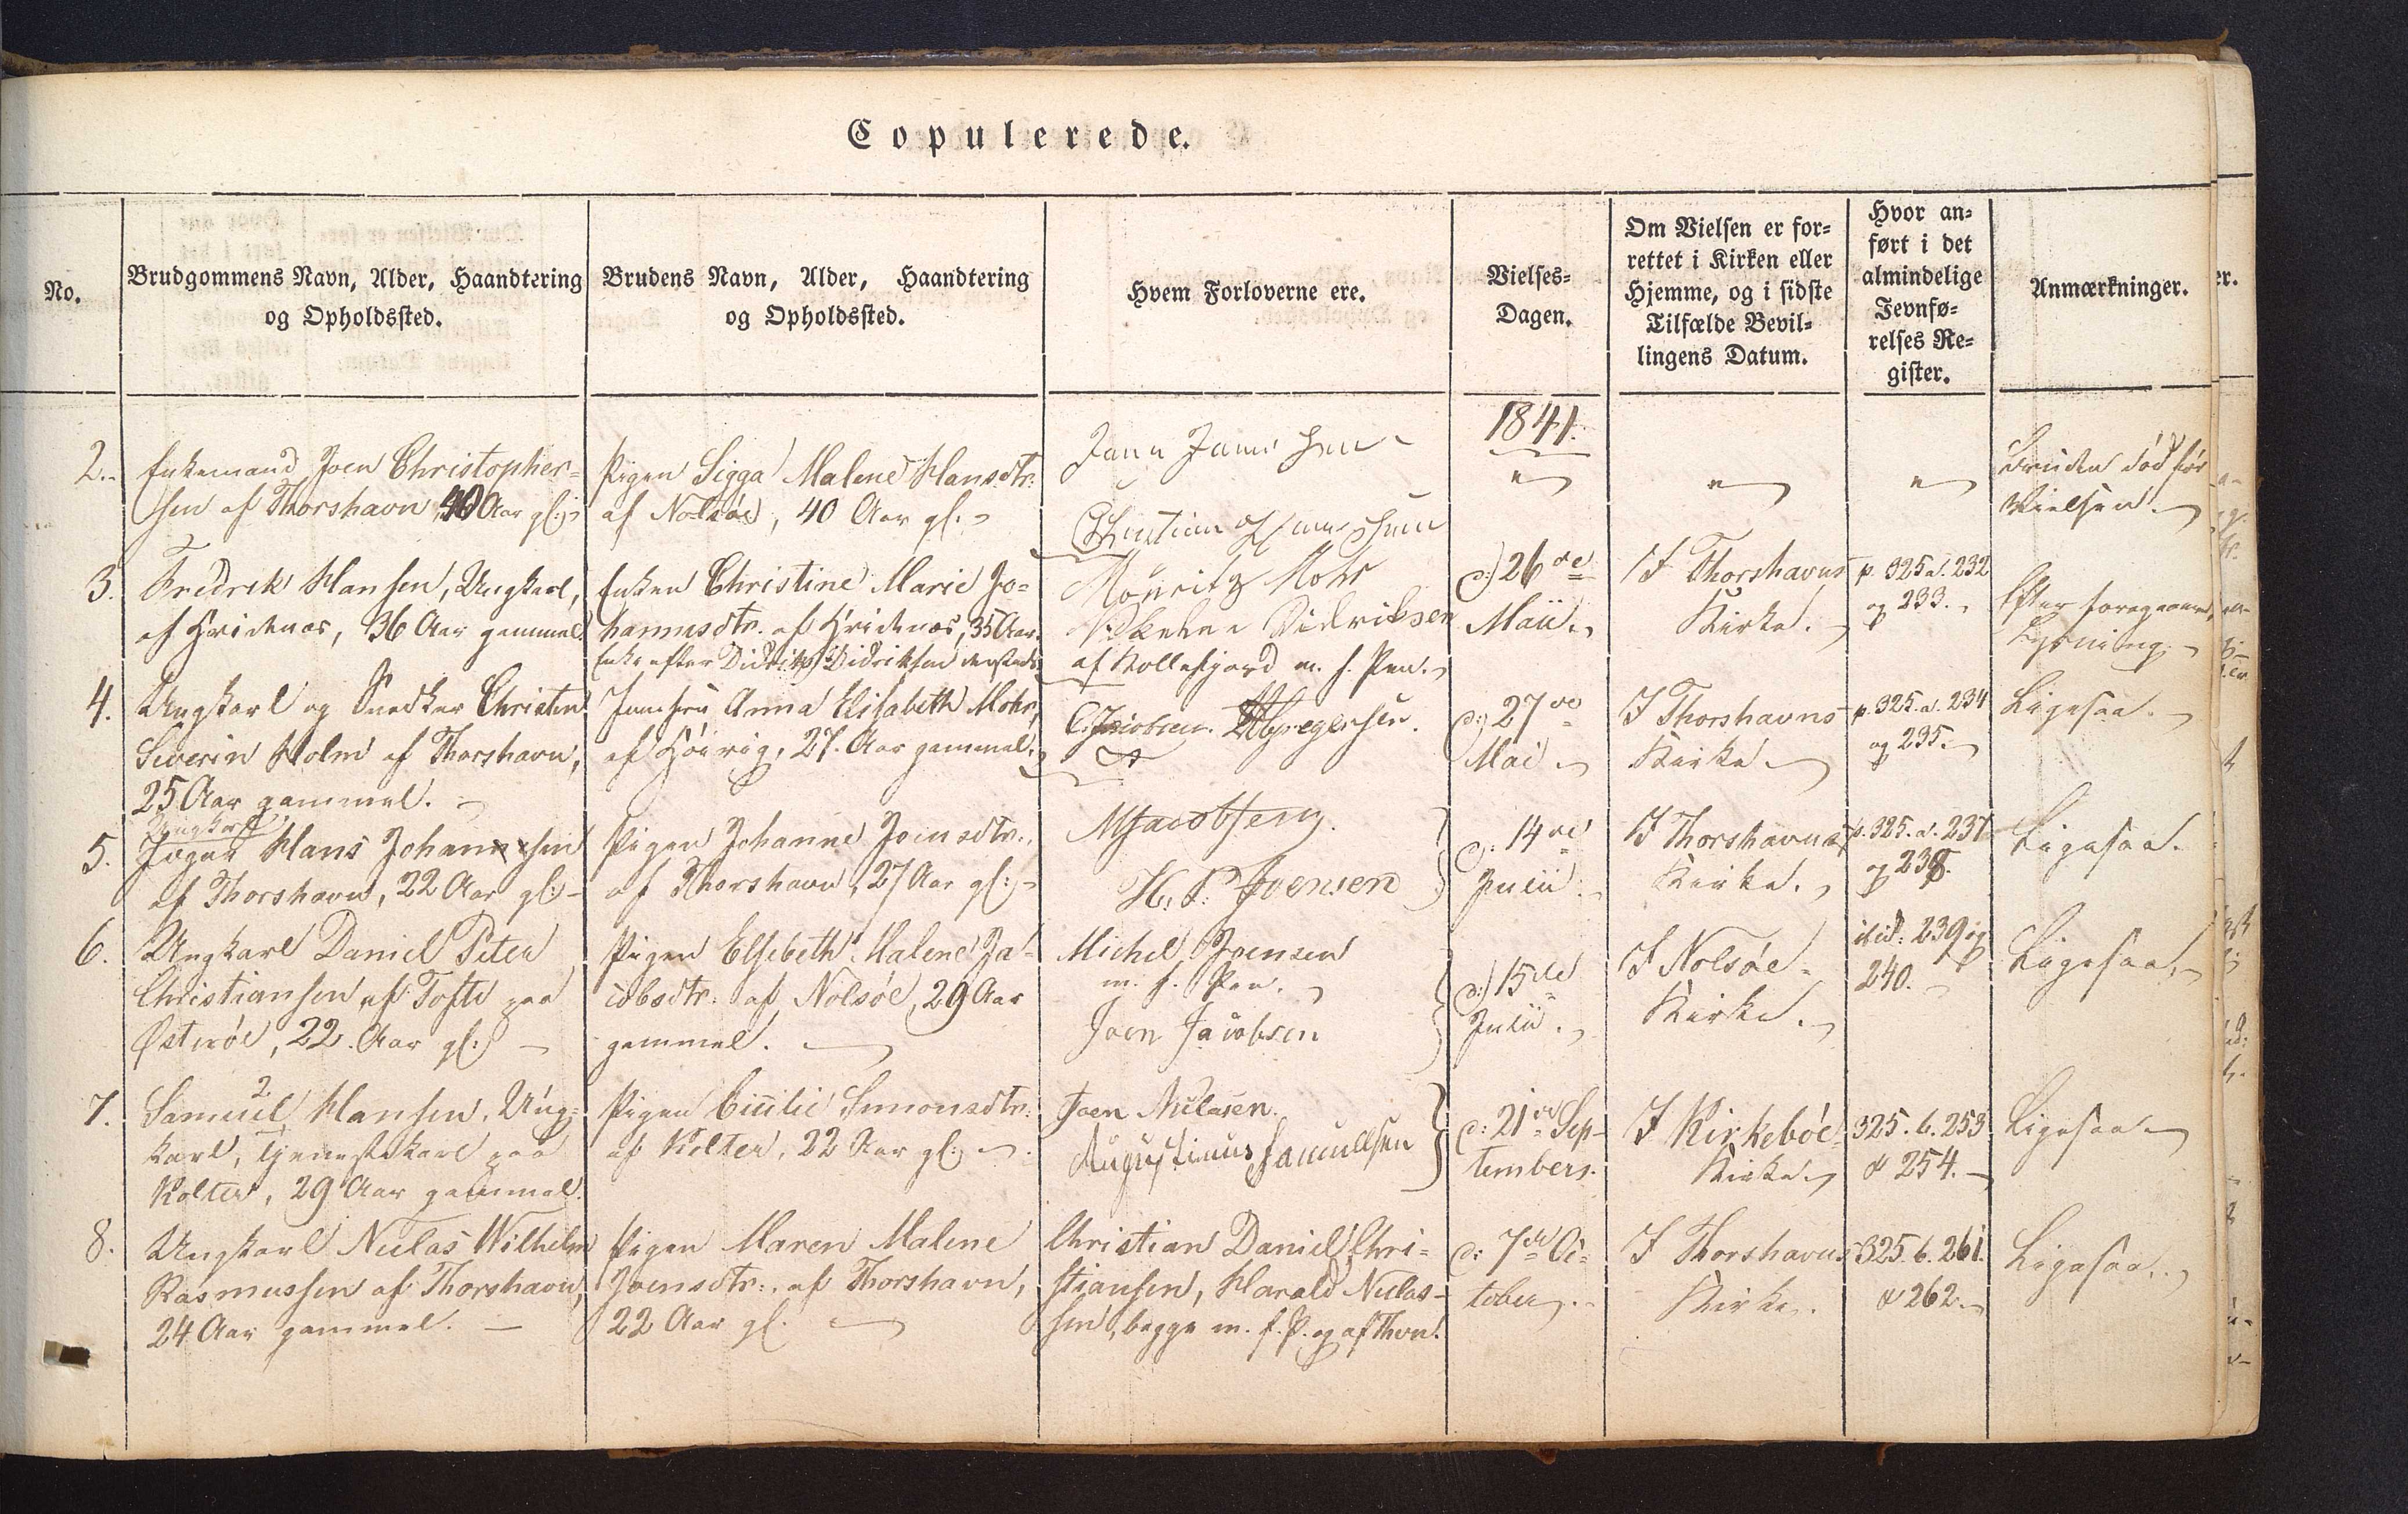 Copulerede.
No.
Brudgommens Navn, Alder, Haandtering
og Opholdssted.
Brudens Navn, Alder, Haandtering
og Opholdssted.
Hvem Forloverne ere.
Vielses-
Dagen.
Om Vielsen er for-
rettet i Kirken eller
Hjemme, og i sidste
Tilfælde Bevil-
lingens Datum.
Hvor an-
ført i det
almindelige
Jevnfø-
relses Re-
gister.
Anmærkninger.
1841.
2.
Enkemand Joen Christopher-
sen af Thorshavn, 40 Aar gl:
Pigen Sigga Malene Hansdtr:
af Nolsöe, 40 Aar gl:
Christian
Bruden död før
Vielsen.
3.
Fredrik Hansen, Ungkarl,
af Hvidenæs, 36 Aar gammel.
Enken Christine Marie Jo-
hannesdtr. af Hvidenæs, 35 Aar.
Enke efter Didrik Didriksen
Mouritz Mohr
Didriksen
af Kollefjord m. f. Pen.
d:) 26de
Maii.
I Thorshavns
Kirke.
p. 325 a. 232
og 233.
Efter foregaaende
Lysning.
4.
Ungkarl og Snedker Christen
Severin Holm af Thorshavn,
25 Aar gammel.
Jomfru Anna Elisabeth Mohr,
af Höivig, 27. Aar gammel.
C. Jacobsen.
d:) 27de
Mai
I Thorshavns
Kirke
p. 325. a. 234
og 235.
Ligesaa.
5.
Ungkarl
Jæger Hans Johannsen
af Thorshavn, 22 Aar gl:
Pigen Johanne Joensdtr.
af Thorshavn, 27 Aar gl:
MJacobsen
H. P. Joensen
d: 14de
Julii.
I Thorshavns
Kirke.
p. 325. a. 237
og 238.
Ligesaa.
6.
Ungkarl Daniel Peter
Christiansen af Tofte paa
Østeröe, 22. Aar gl:
Pigen Elsebeth Malene Ja-
cobsdtr: af Nolsöe, 29 Aar
gammel.
Michel Joensen
m. f. Pen.
Joen Jacobsen
d:) 15de
Julii.
I Nolsöe
Kirke.
ibid: 239 og
240.
Ligesaa.
7.
Samuel Hansen, Ung-
karl, Tjenestekarl paa
Kolter, 29 Aar gammel.
Pigen Cicilie Simonsdtr:
af Kolter, 22 Aar gl:
Joen Niclasen.
Augustinus Samuelsen
d: 21de Sep-
tembers.
I Kirkeböe
Kirke
325. b. 253
& 254.
Ligesaa
8.
Ungkarl Niclas Wilhelm
Rasmussen af Thorshavn,
24 Aar gammel.
Pigen Maren Malene
Joensdtr: af Thorshavn,
22 Aar gl.
Christian Daniel Chri-
stiansen, Harald Niclas-
sen, begge m. f. P. og af Thvn.
d: 7de Oc-
tober.
I Thorshavns
Kirke.
325. b. 261.
& 262.
Ligesaa.